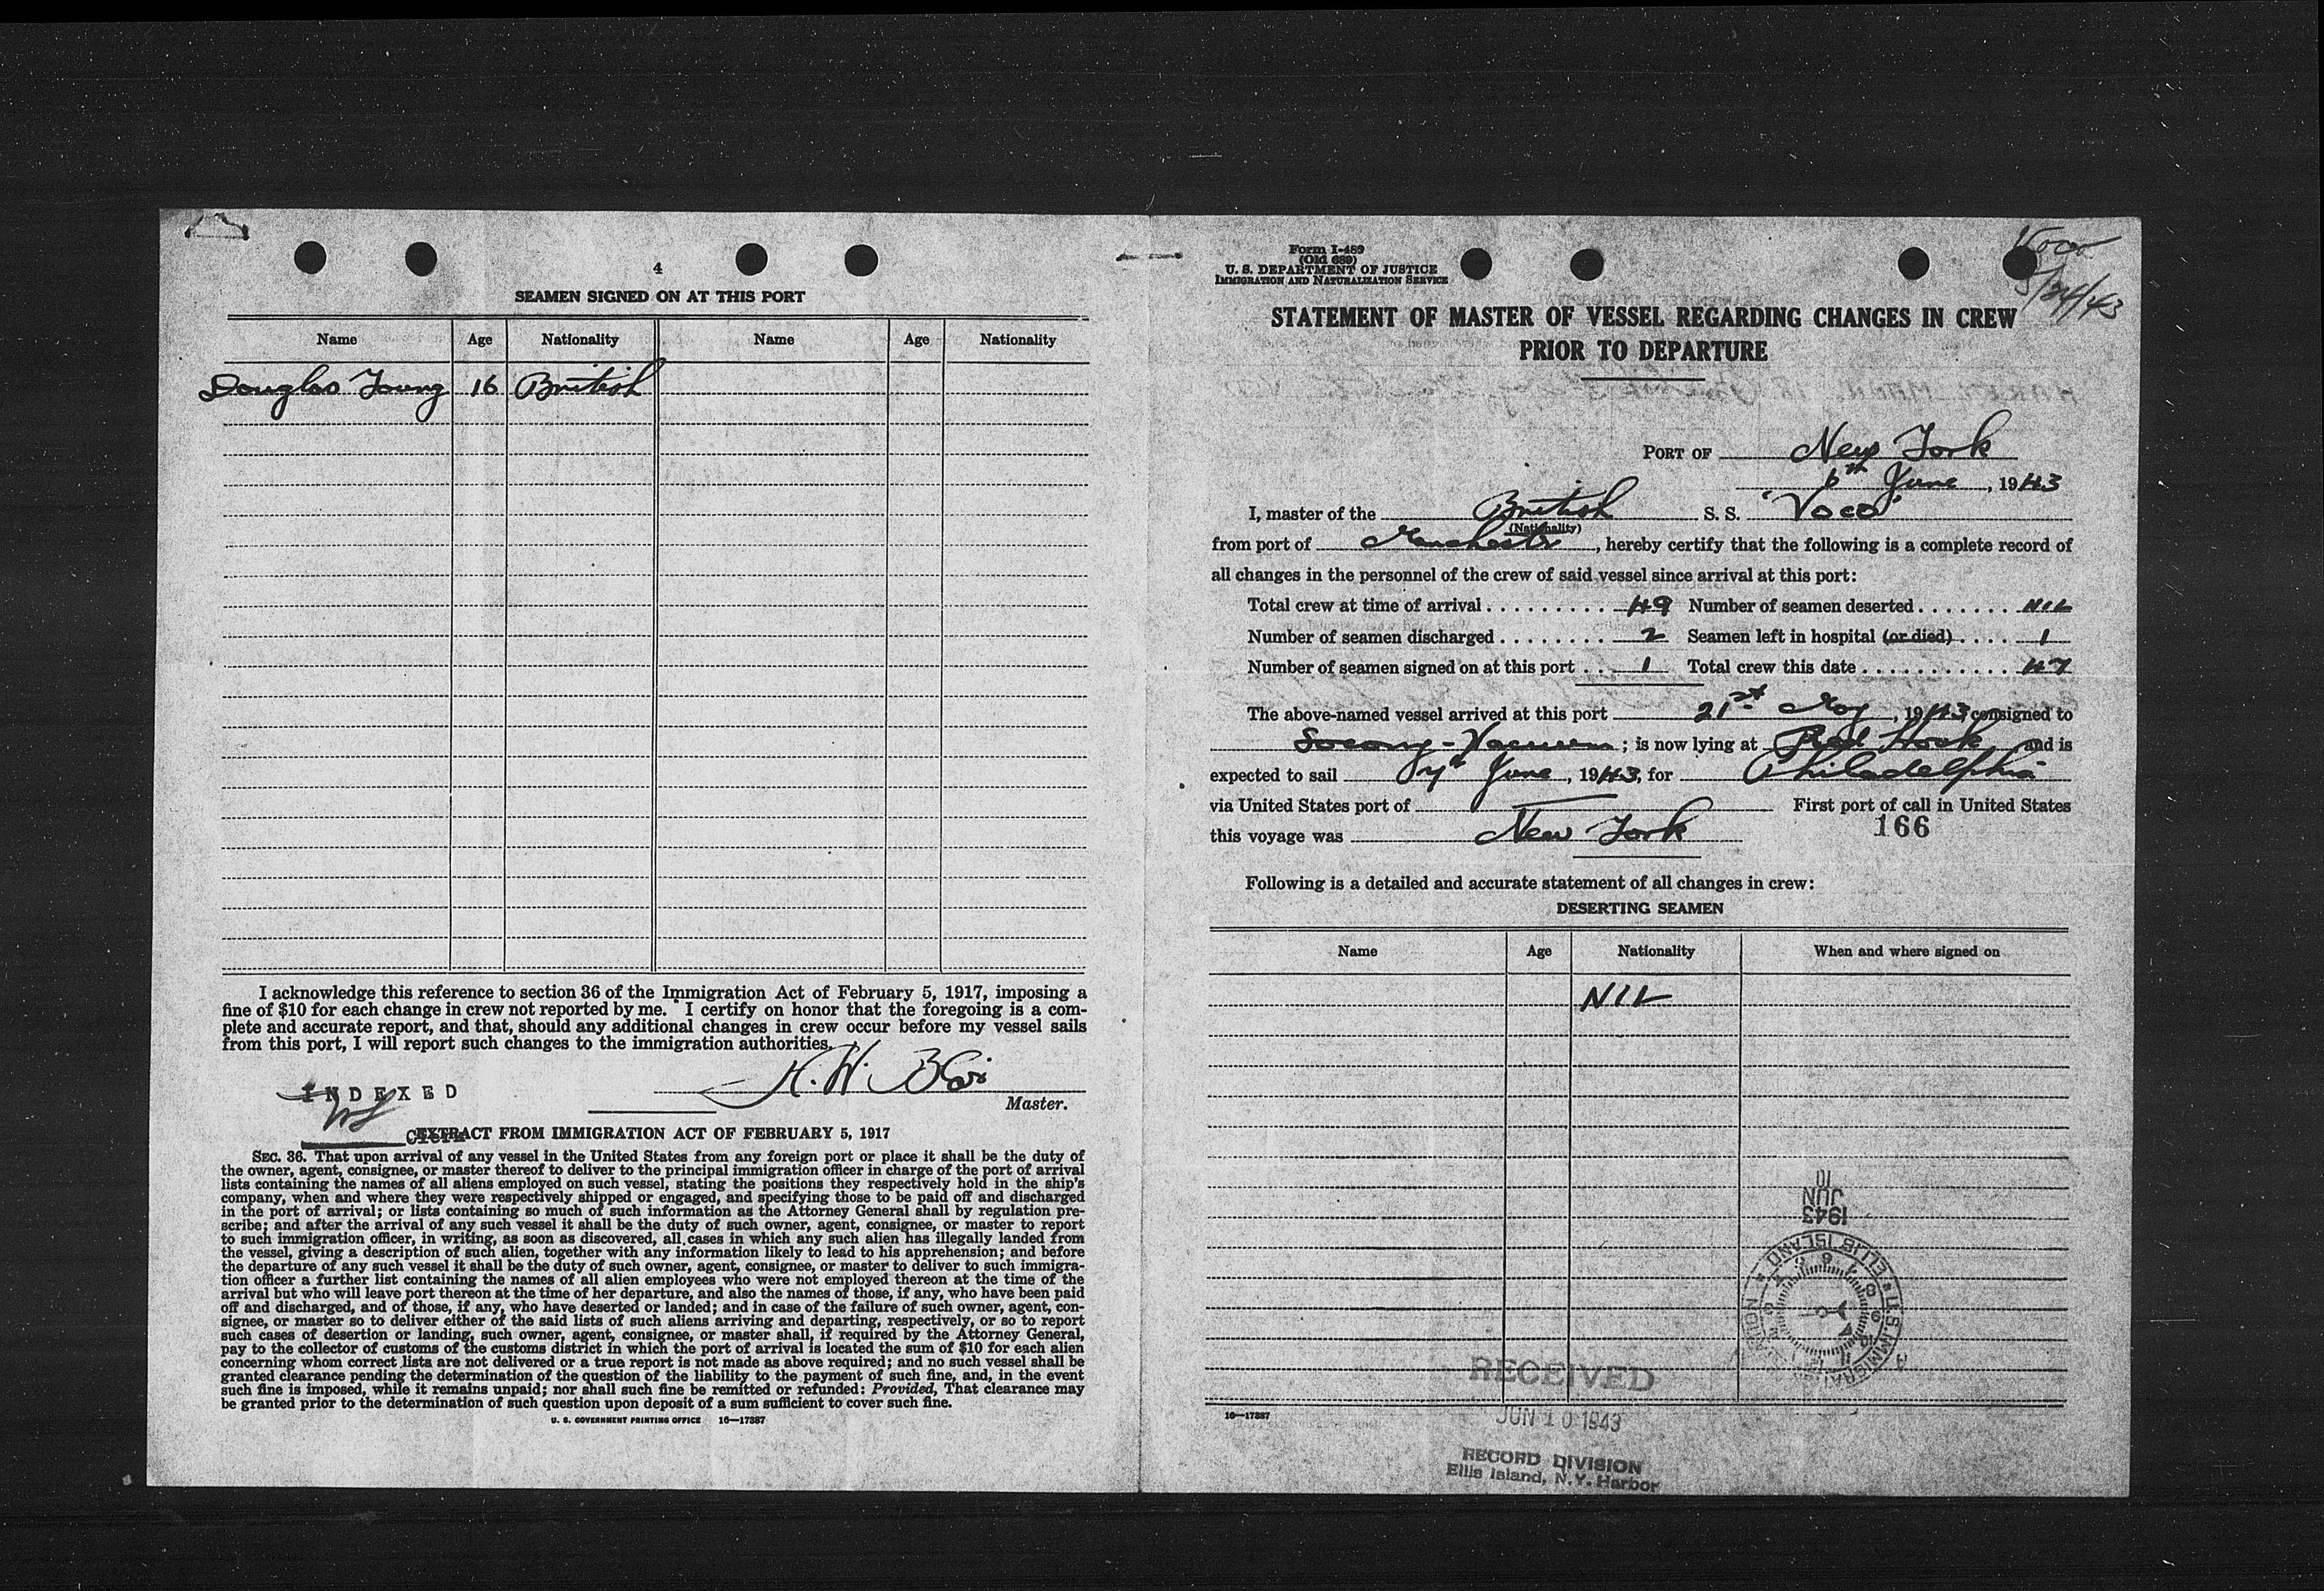 4
SEAMEN SIGNED ON AT THIS PORT
Name Age Nationality Name Age Nationality
Douglas Young 16 British
I acknowledge this reference to section 36 of the Immigration Act of February 5, 1917, imposing a
fine of $10 for each change in crew not reported by me. I certify on honor that the foregoing is a com-
plete and accurate report, and that, should any additional changes in crew occur before my vessel sails
from this port, I will report such changes to the immigration authorities.
INDEXED
Master.
EXTRACT FROM IMMIGRATION ACT OF FEBRUARY 5, 1917
SEC. 36. That upon arrival of any vessel in the United States from any foreign port or place it shall be the duty of
the owner, agent, consignee, or master thereof to deliver to the principal immigration officer in charge of the port of arrival
lists containing the names of all aliens employed on such vessel, stating the positions they respectively hold in the ship's
company, when and where they were respectively shipped or engaged, and specifying those to be paid off and discharged
in the port of arrival; or lists containing so much of such information as the Attorney General shall by regulation pre-
scribe; and after the arrival of any such vessel it shall be the duty of such owner, agent, consignee, or master to report
to such immigration officer, in writing, as soon as discovered, all cases in which any such alien has illegally landed from
the vessel, giving a description of such alien, together with any information likely to lead to his apprehension; and before
the departure of any such vessel it shall be the duty of such owner, agent, consignee, or master to deliver to such immigra-
tion officer a further list containing the names of all alien employees who were not employed thereon at the time of the
arrival but who will leave port thereon at the time of her departure, and also the names of those, if any, who have been paid
off and discharged, and of those, if any, who have deserted or landed; and in case of the failure of such owner, agent, con-
signee, or master so to deliver either of the said lists of such aliens arriving and departing, respectively, or so to report
such cases of desertion or landing, such owner, agent, consignee, or master shall, if required by the Attorney General,
pay to the collector of customs of the customs district in which the port of arrival is located the sum of $10 for each alien
concerning whom correct lists are not delivered or a true report is not made as above required; and no such vessel shall be
granted clearance pending the determination of the question of the liability to the payment of such fine, and, in the event
such fine is imposed, while it remains unpaid; nor shall such fine be remitted or refunded: Provided, That clearance may
be granted prior to the determination of such question upon deposit of a sum sufficient to cover such fine.
U. S. GOVERNMENT PRINTING OFFICE 16—17387
Form I-489
(Old 689)
U. S. DEPARTMENT OF JUSTICE
IMMIGRATION AND NATURALIZATION SERVICE
Voco
5/24/43
STATEMENT OF MASTER OF VESSEL REGARDING CHANGES IN CREW
PRIOR TO DEPARTURE
PORT OF New York
6th June, 1943
I, master of the British S. S. "Voco"
(Nationality)
from port of Manchester, hereby certify that the following is a complete record of
all changes in the personnel of the crew of said vessel since arrival at this port:
Total crew at time of arrival 49 Number of seamen deserted NIL
Number of seamen discharged 2 Seamen left in hospital (or died) 1
Number of seamen signed on at this port 1 Total crew this date 47
The above-named vessel arrived at this port 21st May, 1943 consigned to
Socony-Vacuum; is now lying at Red Hook and is
expected to sail 7th June, 1943, for Philadelphia
via United States port of — First port of call in United States
this voyage was New York 166
Following is a detailed and accurate statement of all changes in crew:
DESERTING SEAMEN
Name Age Nationality When and where signed on
NIL
1943
JUN
10
U.S. IMMIGRATION STATION
ELLIS ISLAND
RECEIVED
16—17387
JUN 10 1943
RECORD DIVISION
Ellis Island, N.Y. Harbor